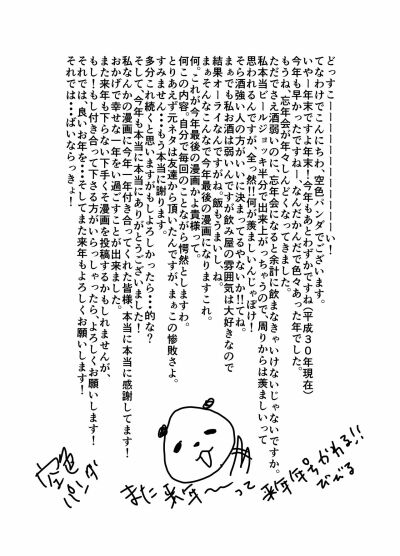 どっすこーーーーーーーーーーーい！
てなわけでこんにちわ、空色パンダでございます。
いやー年末ですよ年末！今年もあとわずかですね（平成３０年現在）
今年も早かったですね…！なんだかんだで色々あった年でした。
もうね、忘年会が年々しんどくなってきました。
ただでさえ酒弱いのに、忘年会になると余計に飲まなきゃいけないじゃないですか。
私本当ビールジョッキ半分で出来上がっちゃうので、周りからは羨ましいって
思われるんですが、全っ然!!何が羨ましいんじゃぼけ！
そら酒強い人の方がいいに決まってるやないか!!てね。
まぁでも私お酒は弱いんですが飲み屋の雰囲気は大好きなので
結果オーライなんですがね。飯もうまいし、ね。
まぁそんなこんなで今年最後の漫画になりますこれ。
何。これが今年最後の漫画かよ貴様って。
何この内容。自分で毎回のことながら愕然としますわ。
とりあえず元ネタは友達から頂いたんですが、まぁこの惨敗さよ。
すみません…もう本当に謝ります。
多分これ続くと思いますがもしよろしかったら…的な？
そして、今年も本当にありがとうございました！
私なんかの漫画に今年一年付き合ってくれた皆様、本当に本当に感謝してます！
おかげで幸せな一年をい過ごすことが出来ました。
また来年も下らない下手くそ漫画を投稿するかもしれませんが、
もし！もし付き合って下さる方がいらっしゃったら、よろしくお願いします！
それでは、良いお年を…そしてまた来年もよろしくお願いします！
それでは…ばいならっきょ！
空色
パンダ
また来年〜って
来年年号かわる!!
びびる